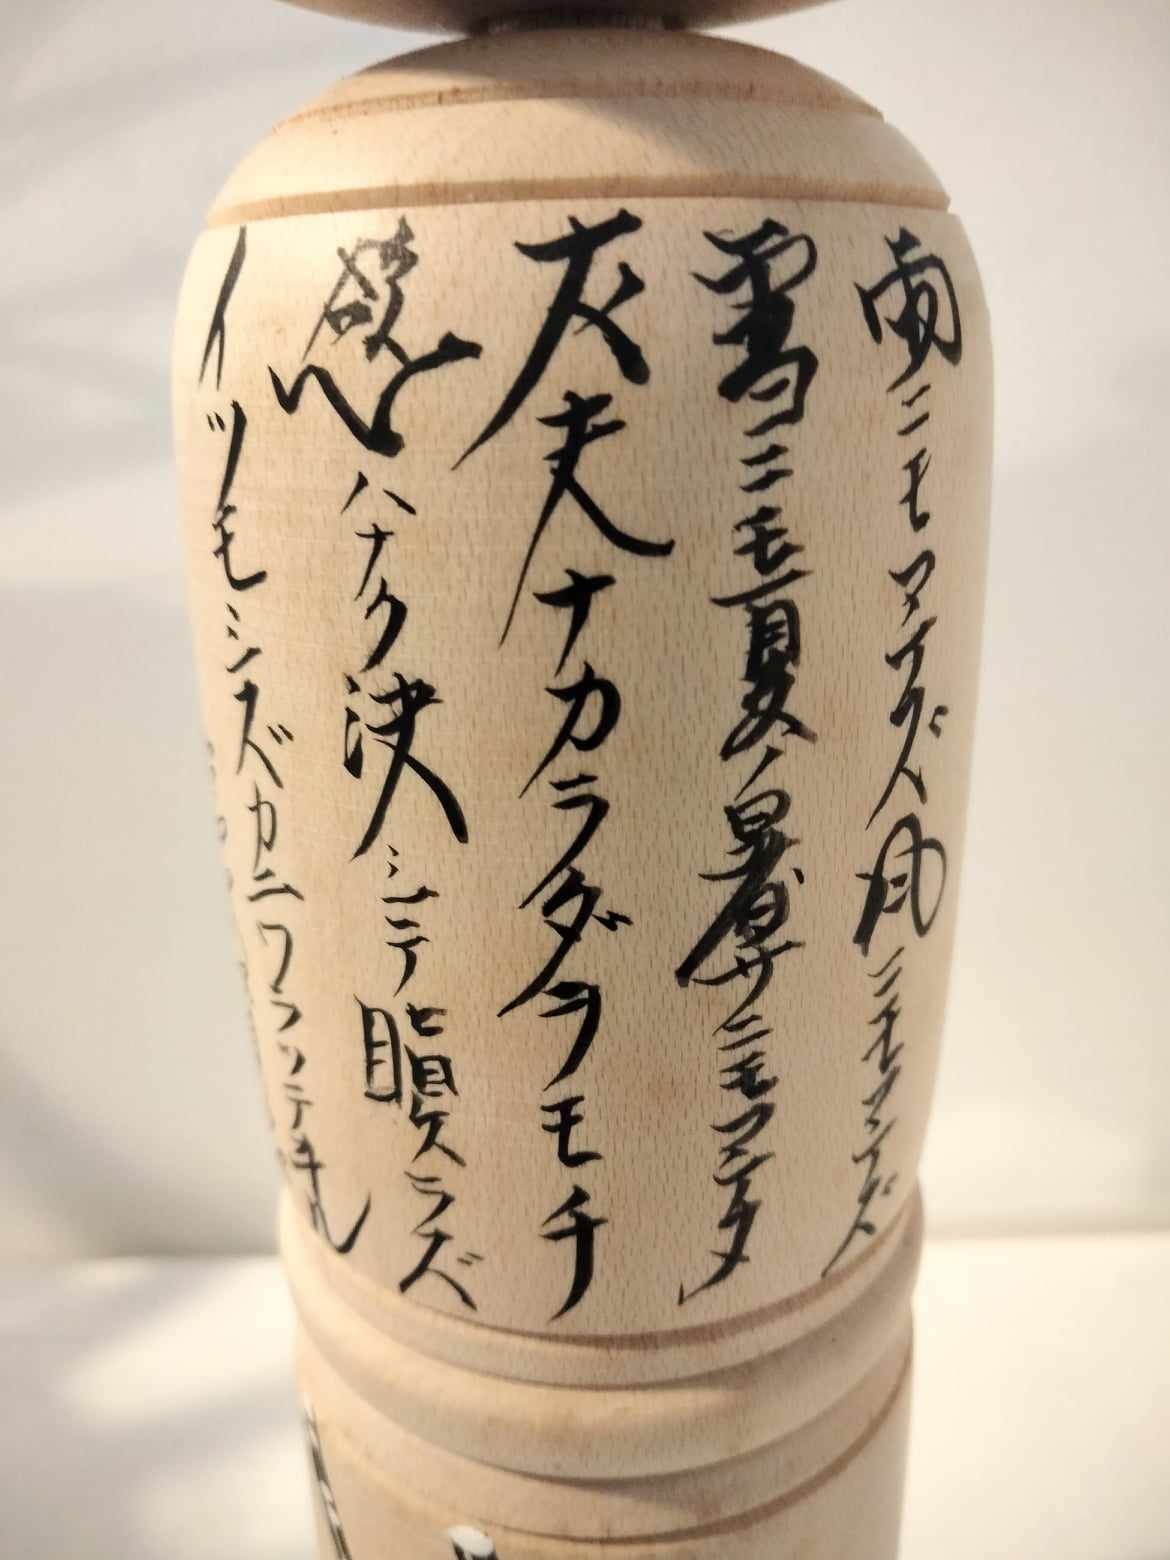 雨ニモマケズ風ニモマケズ
雪ニモ夏ノ暑サニモマケヌ
丈夫ナカラダヲモチ
慾ハナク決シテ瞋ラズ
イツモシズカニワラッテ